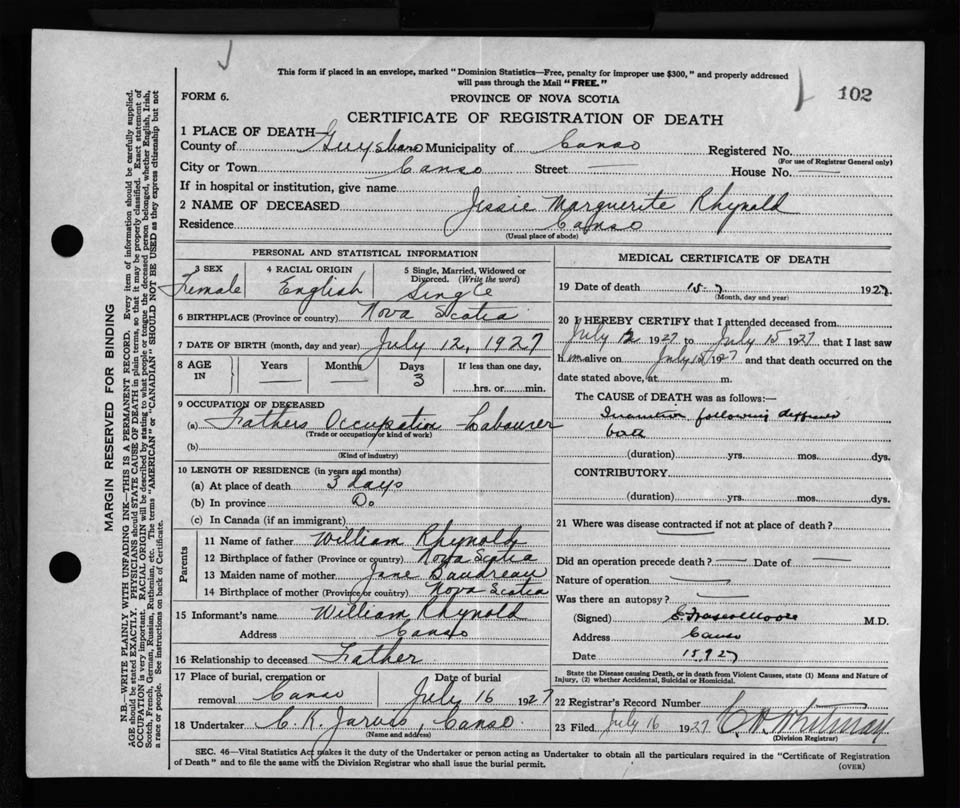 This form if placed in an envelope, marked "Dominion Statistics—Free, penalty for improper use $300," and properly addressed
will pass through the Mail "FREE."
102
FORM 6.
PROVINCE OF NOVA SCOTIA
CERTIFICATE OF REGISTRATION OF DEATH
1 PLACE OF DEATH—
County of Guysboro Municipality of Canso Registered No.
(For use of Registrar General only)
City or Town Canso Street — House No. —
If in hospital or institution, give name
2 NAME OF DECEASED Jessie Marguerite Rhynold
Residence Canso
(Usual place of abode)
PERSONAL AND STATISTICAL INFORMATION
3 SEX 4 RACIAL ORIGIN 5 Single, Married, Widowed or
Divorced. (Write the word)
Female English Single
6 BIRTHPLACE (Province or country) Nova Scotia
7 DATE OF BIRTH (month, day and year) July 12, 1927
8 AGE IN Years — Months — Days 3 If less than one day,
hrs. or min.
9 OCCUPATION OF DECEASED
(a) Fathers Occupation - Labourer
(Trade or occupation or kind of work)
(b)
(Kind of industry)
10 LENGTH OF RESIDENCE (in years and months)
(a) At place of death 3 days
(b) In province Do.
(c) In Canada (if an immigrant)
Parents
11 Name of father William Rhynold
12 Birthplace of father (Province or country) Nova Scotia
13 Maiden name of mother Jane
14 Birthplace of mother (Province or country) Nova Scotia
15 Informant's name William Rhynold
Address Canso
16 Relationship to deceased Father
17 Place of burial, cremation or Date of burial
removal Canso July 16 1927
18 Undertaker C. K. Jarvis, Canso.
(Name and address)
MEDICAL CERTIFICATE OF DEATH
19 Date of death 15-7 1927
(Month, day and year)
20 I HEREBY CERTIFY that I attended deceased from
July 12 1927 to July 15 1927 that I last saw
h im alive on July 15/1927 and that death occurred on the
date stated above, at m.
The CAUSE of DEATH was as follows:—
Inanition following
birth
(duration) yrs. mos. dys.
CONTRIBUTORY.
(duration) yrs. mos. dys.
21 Where was disease contracted if not at place of death?
Did an operation precede death? — Date of —
Nature of operation —
Was there an autopsy? —
(Signed) E. Fraser Moore M.D.
Address Canso
Date 15.7.27
State the Disease causing Death, or in death from Violent Causes, state (1) Means and Nature of
Injury, (2) whether Accidental, Suicidal or Homicidal.
22 Registrar's Record Number
23 Filed July 16 1927 C. H. Whitman
(Division Registrar)
SEC. 46—Vital Statistics Act makes it the duty of the Undertaker or person acting as Undertaker to obtain all the particulars required in the "Certificate of Registration
of Death" and to file the same with the Division Registrar who shall issue the burial permit.
(OVER)
MARGIN RESERVED FOR BINDING
N.B.—WRITE PLAINLY WITH UNFADING INK—THIS IS A PERMANENT RECORD. Every item of information should be carefully supplied.
AGE should be stated EXACTLY. PHYSICIANS should STATE CAUSE OF DEATH in plain terms, so that it may be properly classified. Exact statement of
OCCUPATION is very important. RACIAL ORIGIN will be described by stating to what people or tongue the deceased person belonged, whether English, Irish,
Scotch, French, German, Russian, Ruthenian, etc. The terms "AMERICAN" or "CANADIAN" SHOULD NOT BE USED as they express citizenship but not
a race or people. See instructions on back of Certificate.